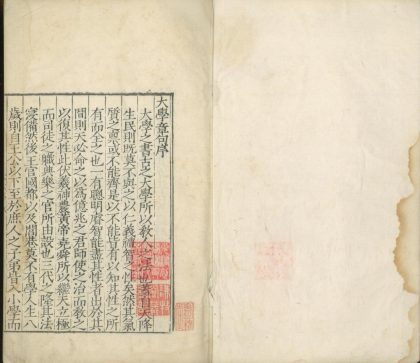 大學章句序
大學之書古之大學所以教人之法也蓋自天降
生民則既莫不與之以仁義禮智之性矣然其氣
質之稟或不能齊是以不能皆有以知其性之所
有而全之也一有聰明睿智能盡其性者出於其
間則天必命之以為億兆之君師使之治而教之
以復其性此伏羲神農黃帝堯舜所以繼天立極
而司徒之職典樂之官所由設也三代之隆其法
寖備然後王宮國都以及閭巷莫不有學人生八
歲則自王公以下至於庶人之子弟皆入小學而